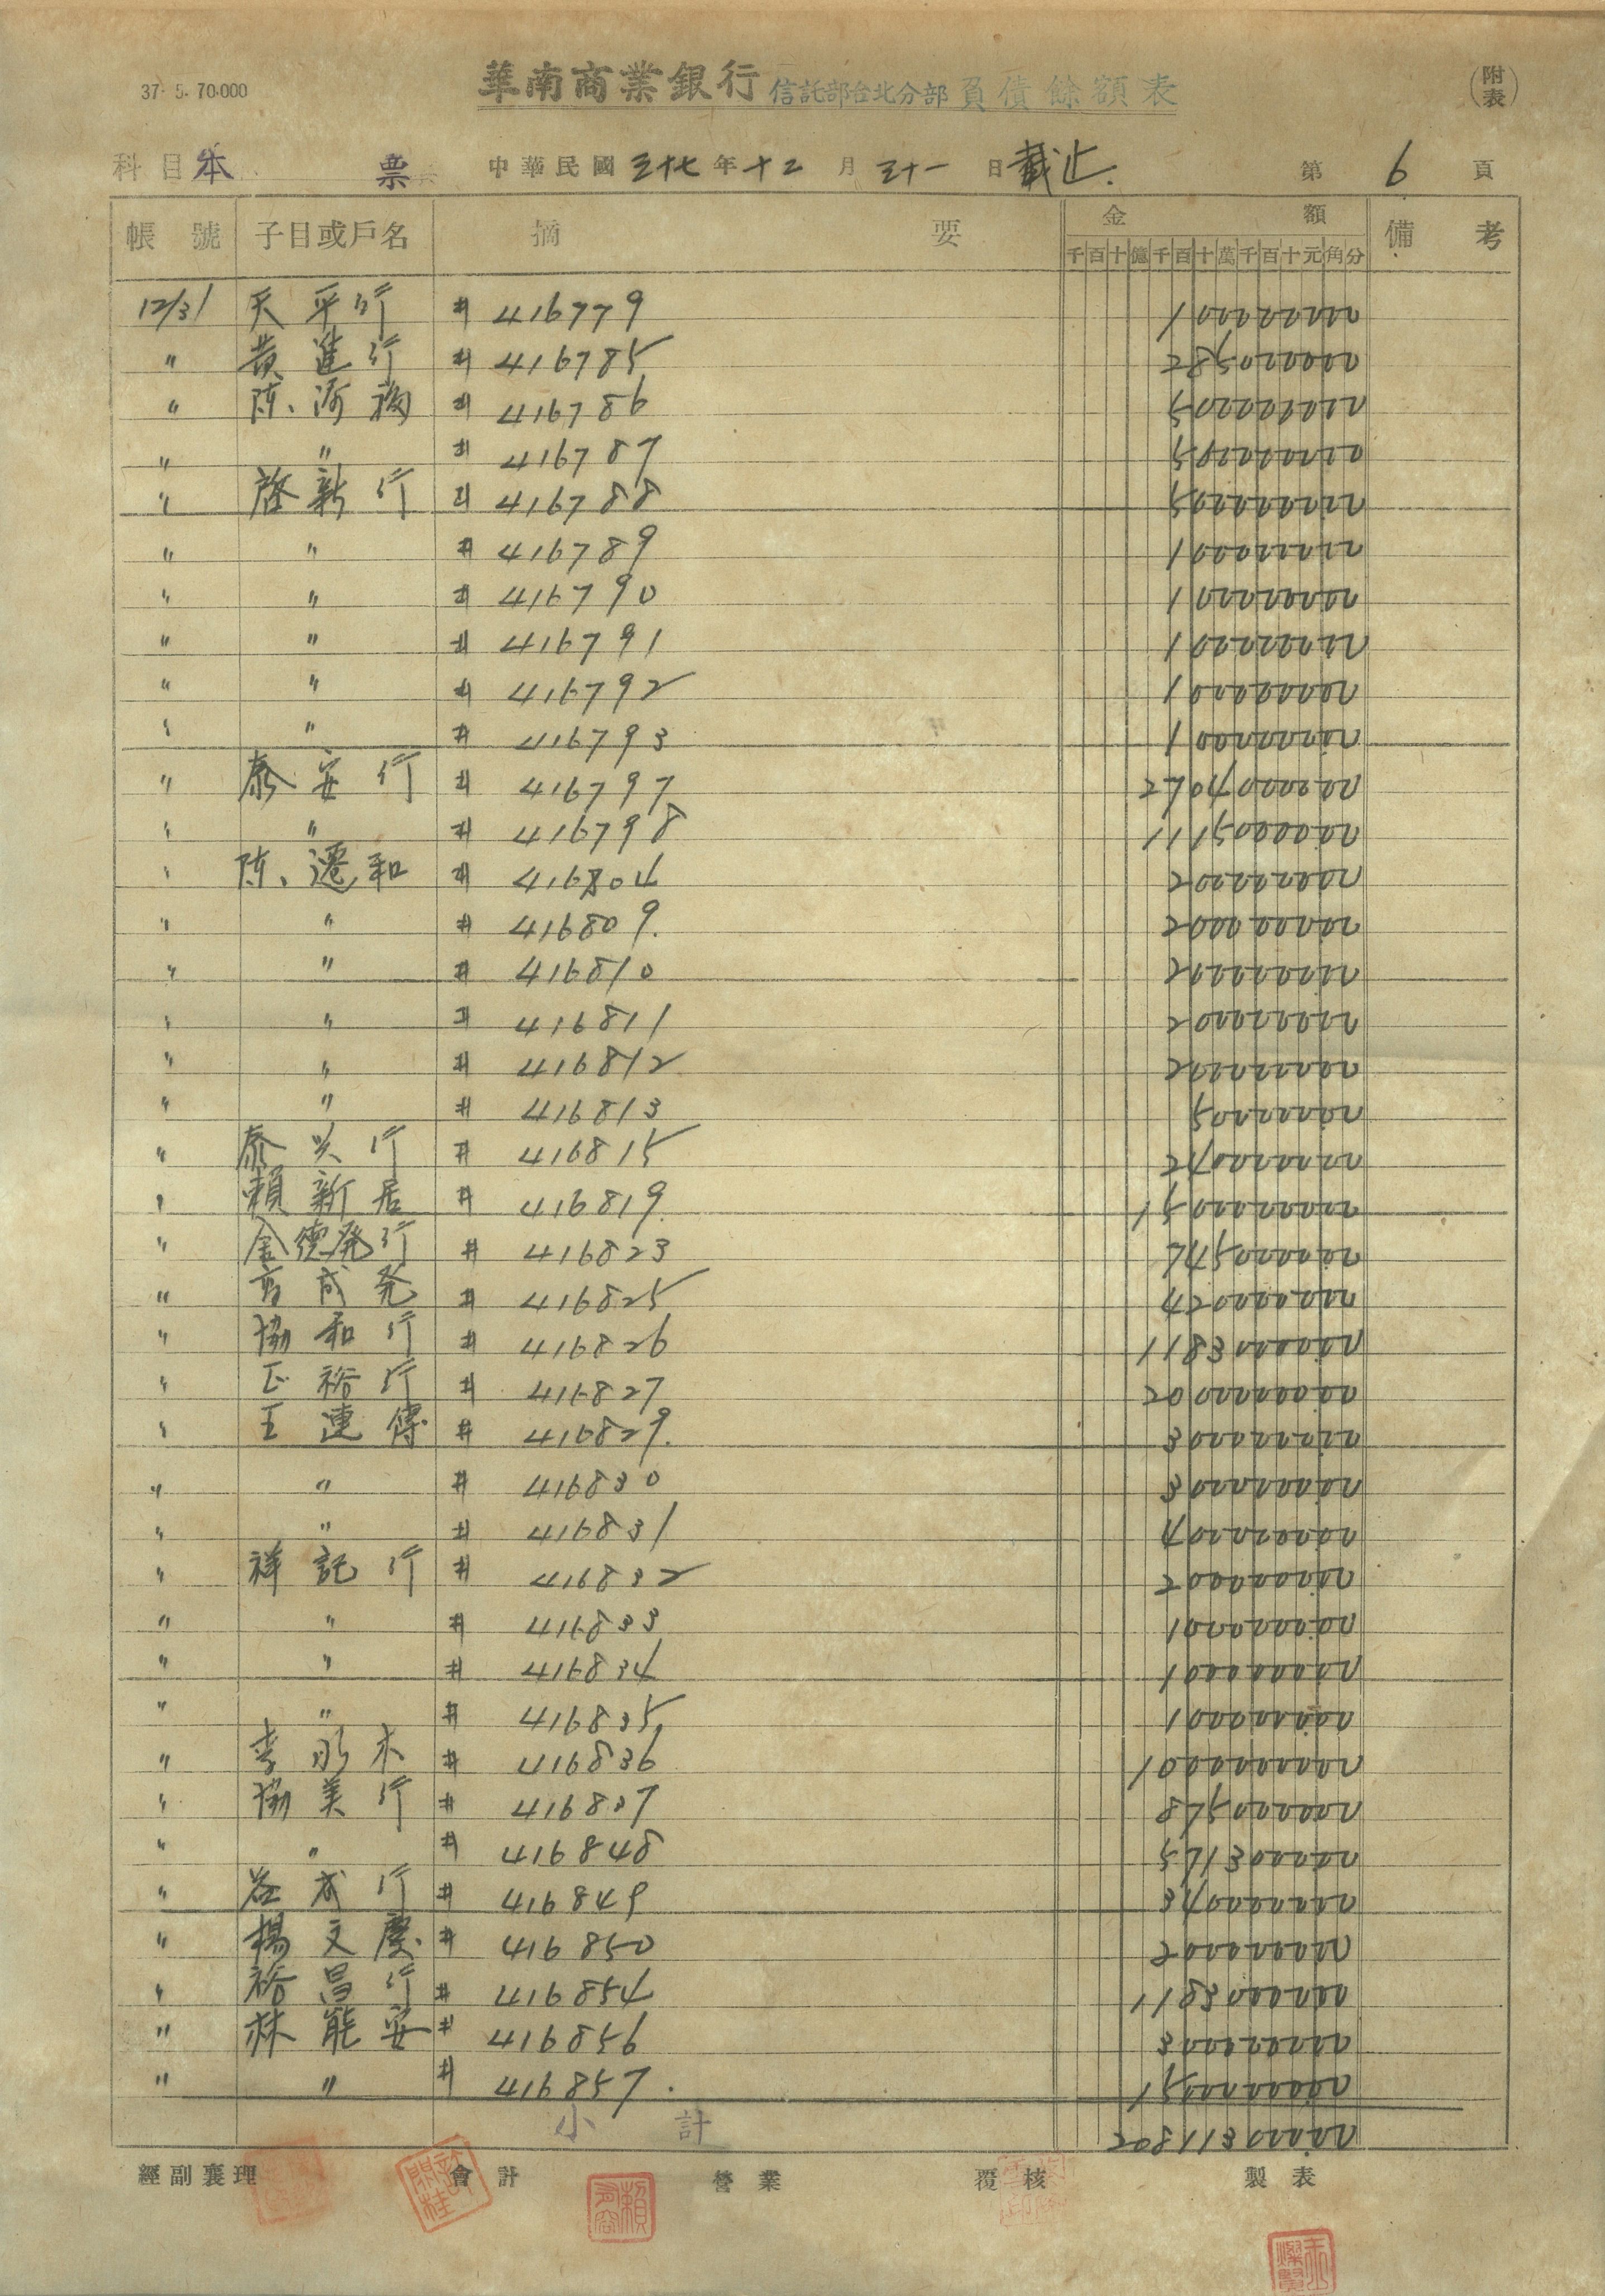 37·5·70·000
華南商業銀行 信託部台北分部 負債餘額表
(附表)
科目 本票 中華民國三十七年十二月三十一日截止. 第6頁
帳號 子目或戶名 摘要 金額 備考
千百十億千百十萬千百十元角分
12/31 天平行 # 416779 100000000
〃 黃進行 # 416785 285000000
〃 陈河福 # 416786 500000000
〃 〃 # 416787 500000000
〃 啓新行 # 416788 500000000
〃 〃 # 416789 100000000
〃 〃 # 416790 100000000
〃 〃 # 416791 100000000
〃 〃 # 416792 100000000
〃 〃 # 416793 100000000
〃 泰安行 # 416797
〃 〃 # 416798 1115000000
〃 陈遷和 # 416804 200000000
〃 〃 # 416809. 200000000
〃 〃 # 416810 200000000
〃 〃 # 416811 200000000
〃 〃 # 416812 200000000
〃 〃 # 416813 50000000
〃 泰兴行 # 416815
〃 賴新居 # 416819. 1500000000
〃 金德発行 # 416823
〃 成発 # 416825 420000000
〃 協和行 # 416826 1183000000
〃 正裕行 # 416827 2000000000
〃 王連傳 # 416829. 300000000
〃 〃 # 416830 300000000
〃 〃 # 416831 400000000
〃 祥記行 # 416832 200000000
〃 〃 # 416833 100000000
〃 〃 # 416834 100000000
〃 〃 # 416835 100000000
〃 李永木 # 416836 1000000000
〃 協美行 # 416837 865000000
〃 〃 # 416848 561300000
〃 益成行 # 416849 340000000
〃 楊文慶 # 416850 200000000
〃 裕昌行 # 416854 1183000000
〃 林能安 # 416856 300000000
〃 〃 # 416857. 1500000000
小計 20811300000
經副襄理 會計 營業 覆核 製表